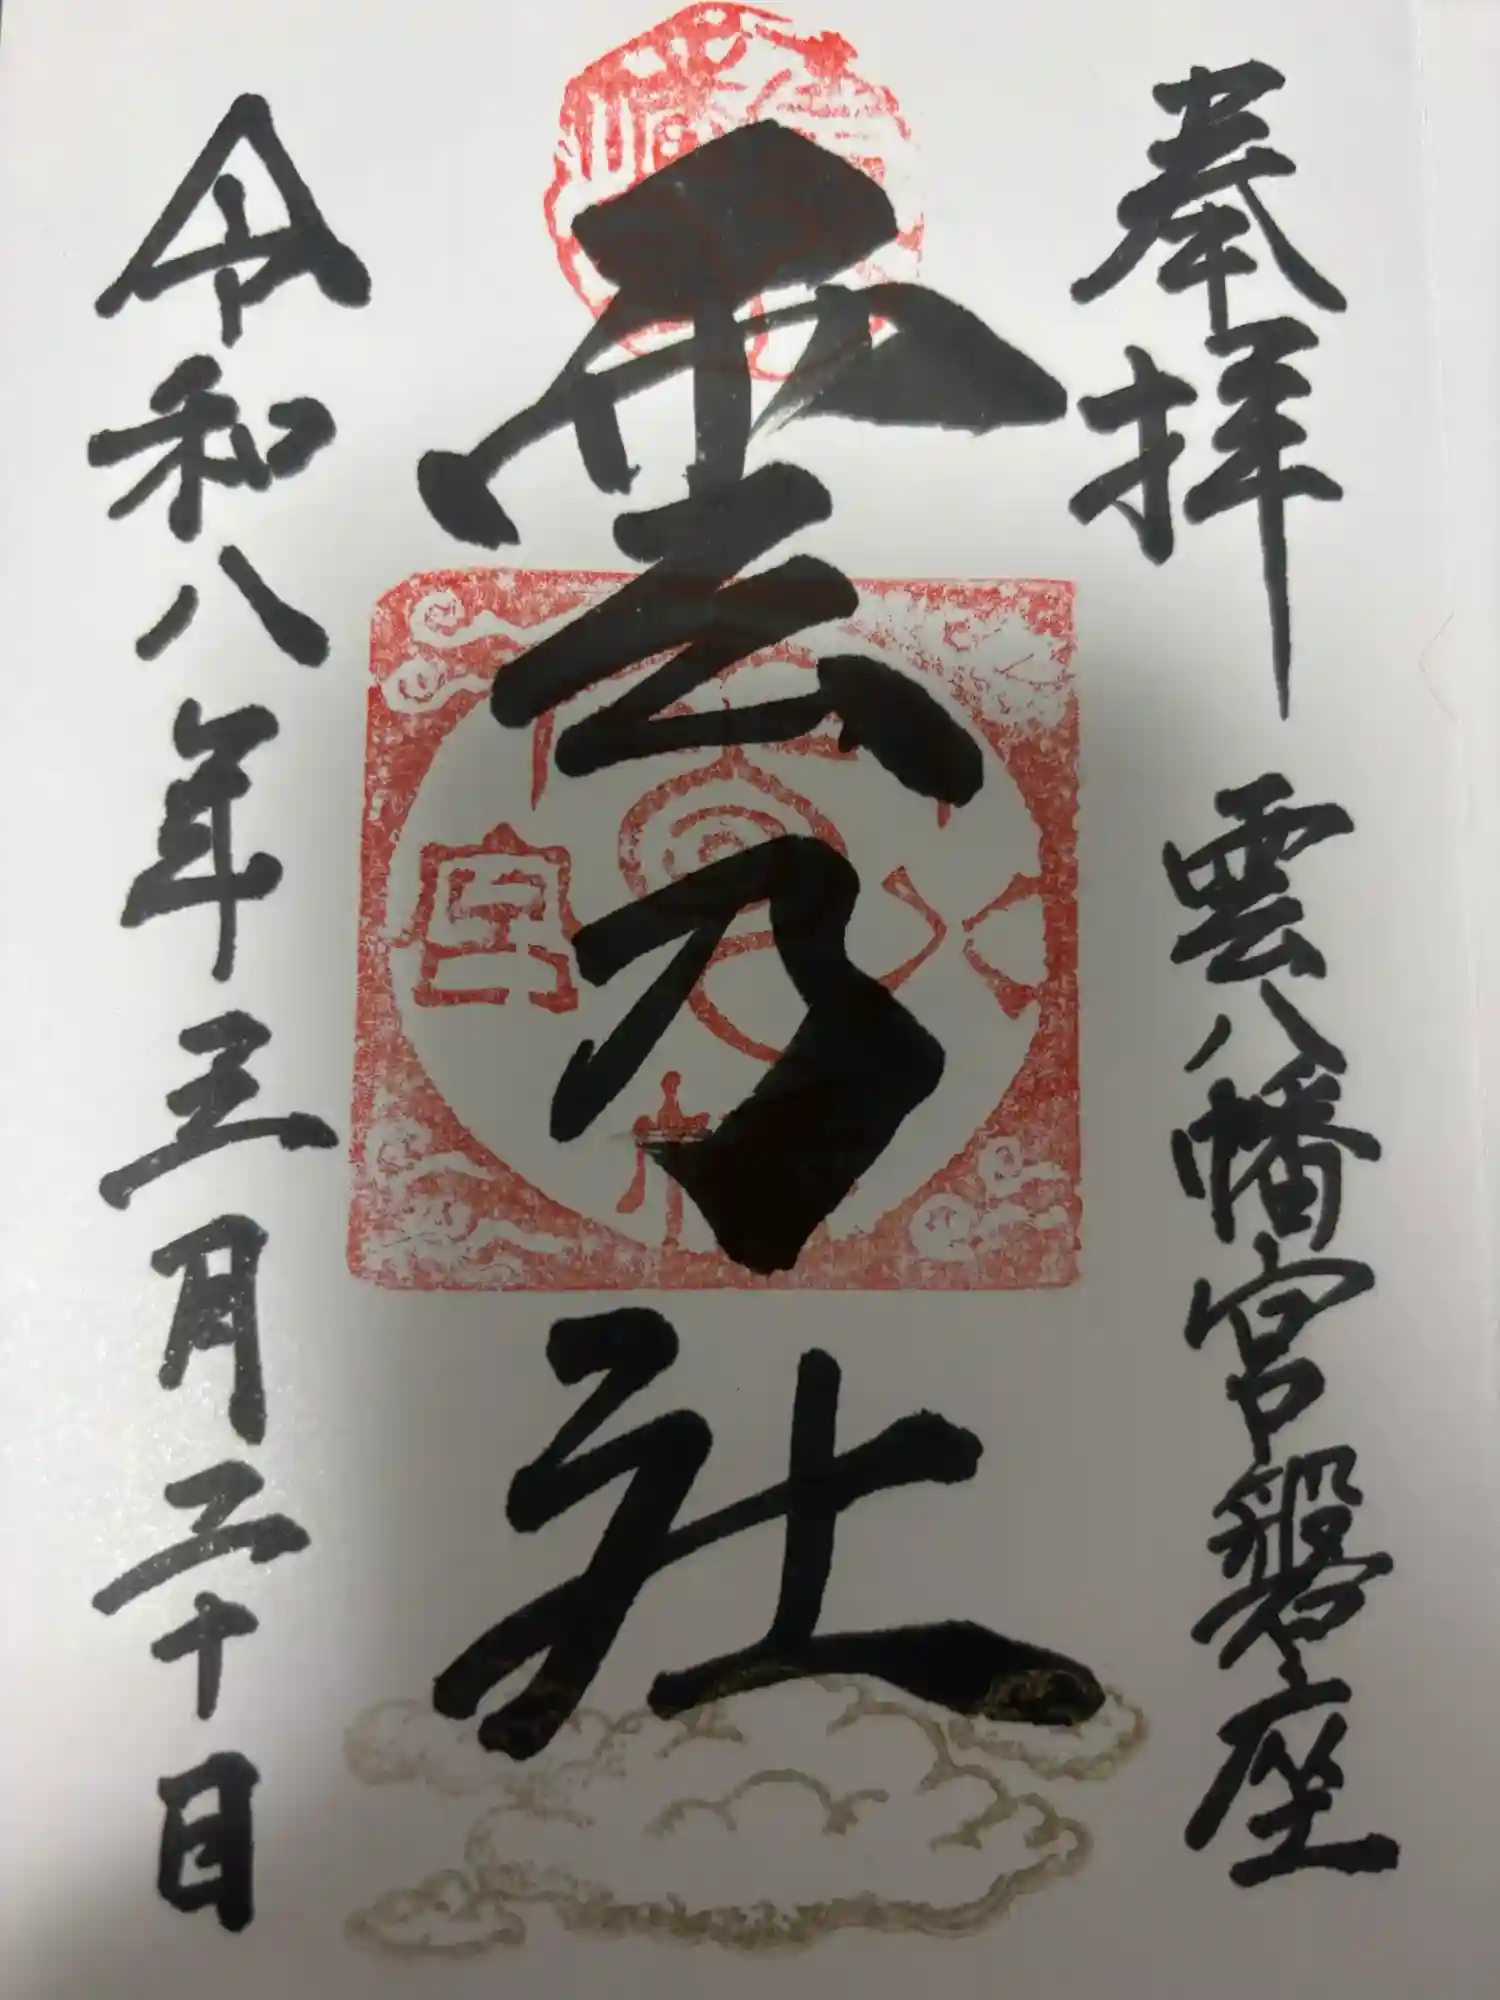 奉拝 雲八幡宮磐座
雲乃社
令和八年三月二十日